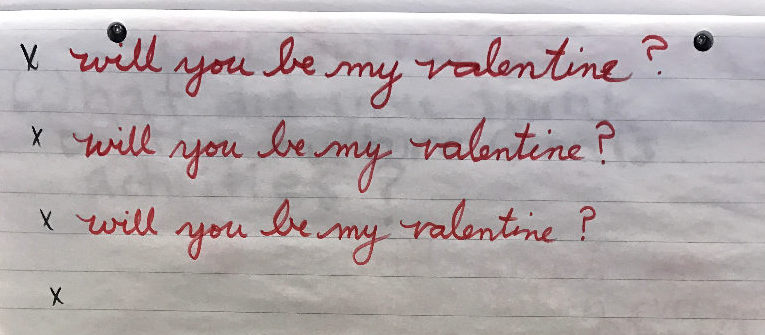 x will you be my valentine?
x will you be my valentine?
x will you be my valentine?
x